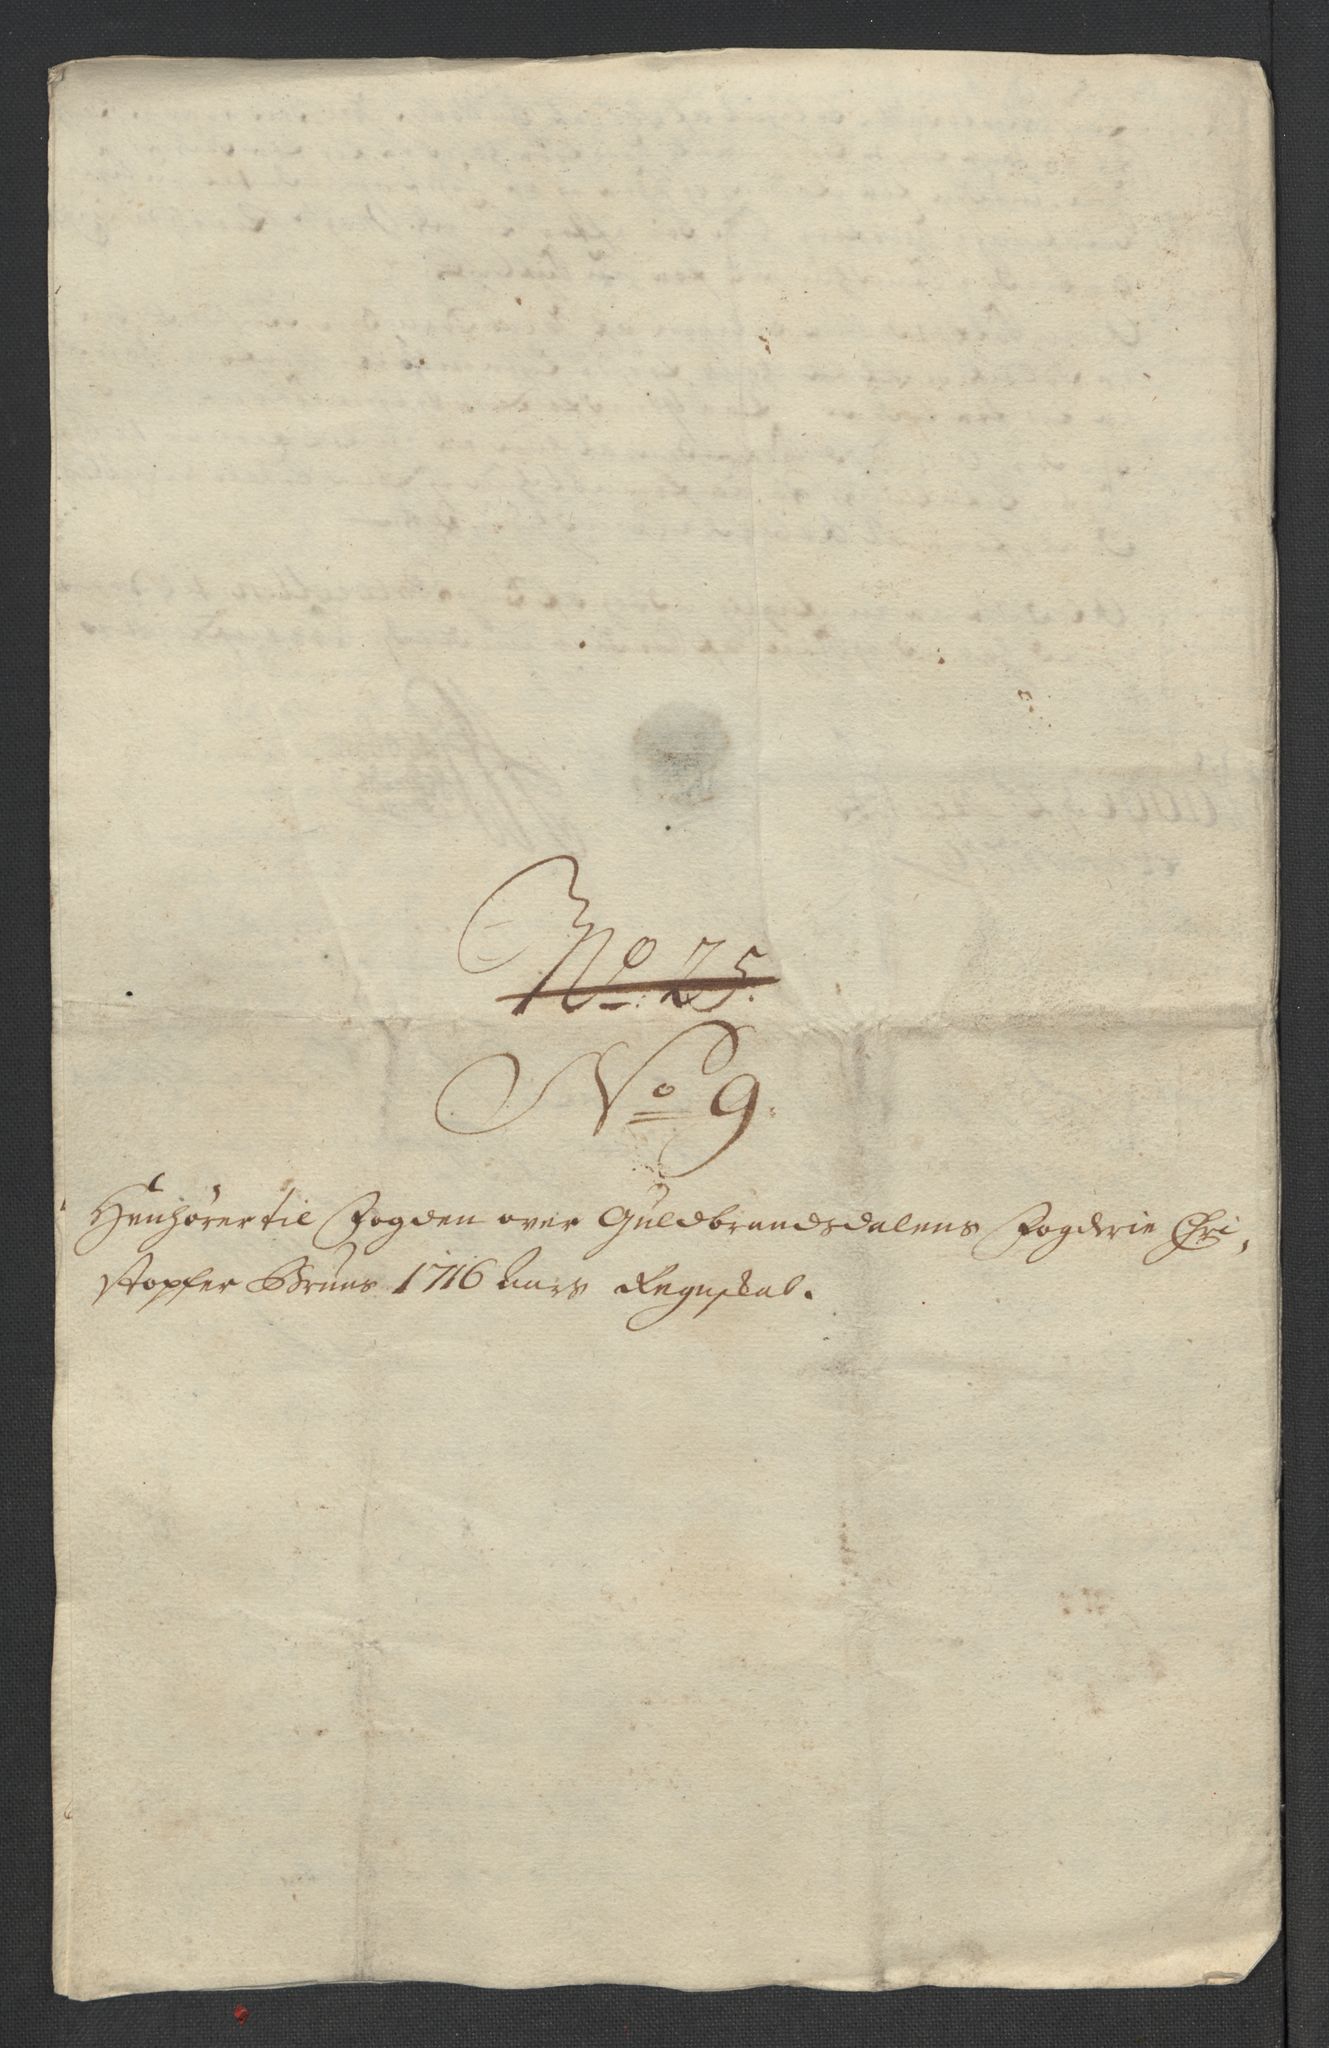 No: 25.
No 9.
Henhører til Fogden over Guldbrandsdalens Fogderie Chri,
stopfer Bruns 1716 Aars Regnskab.